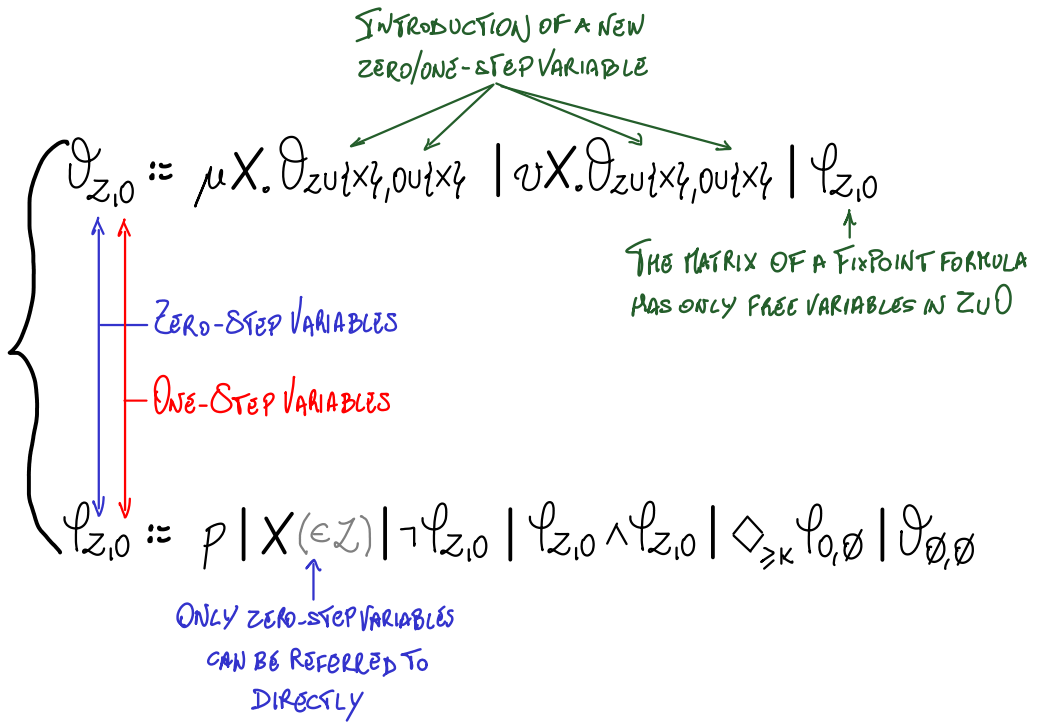 INTRODUCTION OF A NEW
ZERO/ONE-STEP VARIABLE
ϑ_{Z,O} ::= μX.ϑ_{Z∪{X},O∪{X}} | νX.ϑ_{Z∪{X},O∪{X}} | φ_{Z,O}
THE MATRIX OF A FIXPOINT FORMULA
HAS ONLY FREE VARIABLES IN Z∪O
ZERO-STEP VARIABLES
ONE-STEP VARIABLES
φ_{Z,O} ::= p | X(∈Z) | ¬φ_{Z,O} | φ_{Z,O} ∧ φ_{Z,O} | ◇_{≥K} φ_{O,∅} | ϑ_{∅,∅}
ONLY ZERO-STEP VARIABLES
CAN BE REFERRED TO
DIRECTLY